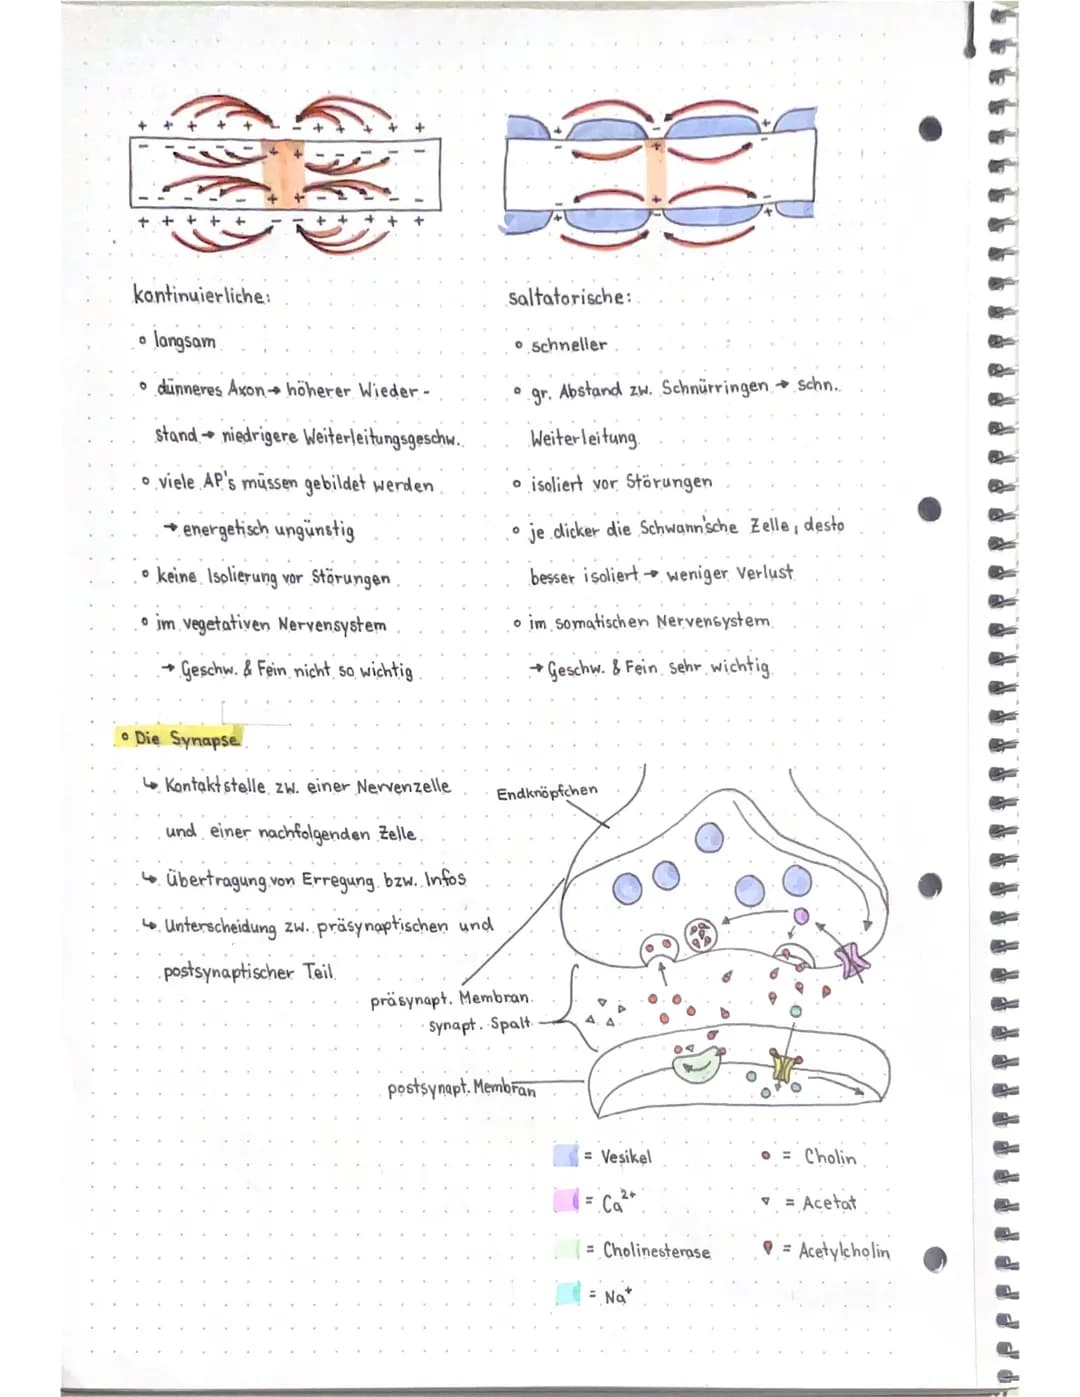 kontinuierliche:
° langsam
° dünneres Axon → höherer Wieder-
stand → niedrigere Weiterleitungsgeschw.
° viele AP's müssen gebildet werden
→ energetisch ungünstig
° keine Isolierung vor Störungen
° im vegetativen Nervensystem
→ Geschw. & Fein nicht so wichtig
saltatorische:
° schneller
° gr. Abstand zw. Schnürringen → schn.
Weiterleitung
° isoliert vor Störungen
° je dicker die Schwann'sche Zelle, desto
besser isoliert → weniger Verlust
° im somatischen Nervensystem
→ Geschw. & Fein sehr wichtig
° Die Synapse
↳ Kontaktstelle zw. einer Nervenzelle
und einer nachfolgenden Zelle
↳ Übertragung von Erregung bzw. Infos
↳ Unterscheidung zw. präsynaptischen und
postsynaptischer Teil
Endknöpfchen
präsynapt. Membran
synapt. Spalt
postsynapt. Membran
= Vesikel
= Ca²⁺
= Cholinesterase
= Na⁺
= Cholin
= Acetat
= Acetylcholin